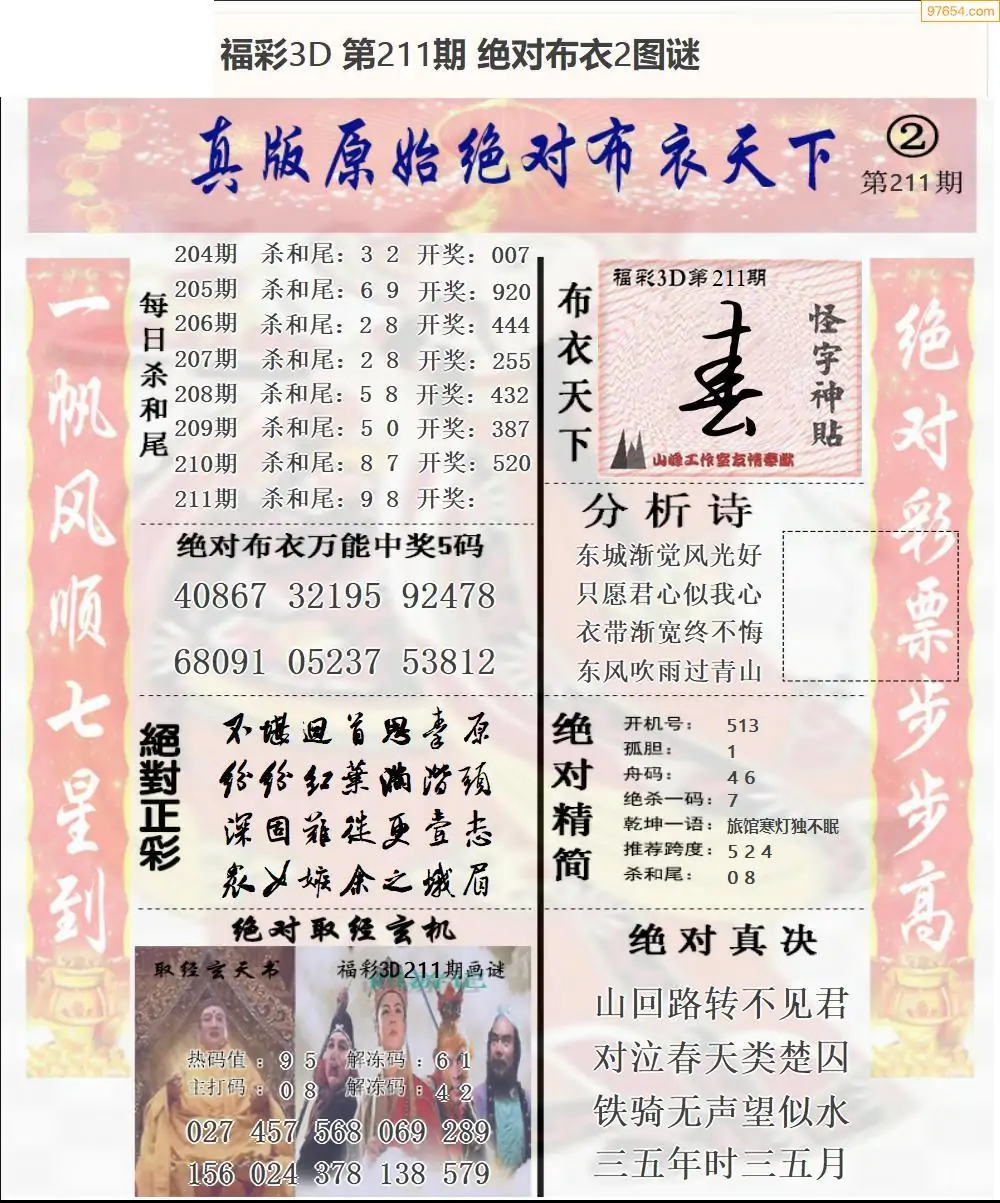 97654.com
福彩3D 第211期 绝对布衣2图谜
真版原始绝对布衣天下
②
第211期
一帆风顺七星到
每日杀和尾
204期 杀和尾：3 2 开奖：007
205期 杀和尾：6 9 开奖：920
206期 杀和尾：2 8 开奖：444
207期 杀和尾：2 8 开奖：255
208期 杀和尾：5 8 开奖：432
209期 杀和尾：5 0 开奖：387
210期 杀和尾：8 7 开奖：520
211期 杀和尾：9 8 开奖：
绝对布衣万能中奖5码
40867 32195 92478
68091 05237 53812
絕對正彩
不堪迴首思秦原
纷纷红葉满階頭
深固難徙更壹志
衆女嫉余之蛾眉
绝对取经玄机
取经玄天书
福彩3D211期画谜
热码值：9 5 解冻码：6 1
主打码：0 8 解冻码：4 2
027 457 568 069 289
156 024 378 138 579
布衣天下
福彩3D第211期
怪字神贴
山峰工作室友情奉献
分析诗
东城渐觉风光好
只愿君心似我心
衣带渐宽终不悔
东风吹雨过青山
绝对精简
开机号：513
孤胆：1
舟码：4 6
绝杀一码：7
乾坤一语：旅馆寒灯独不眠
推荐跨度：5 2 4
杀和尾：0 8
绝对真决
山回路转不见君
对泣春天类楚囚
铁骑无声望似水
三五年时三五月
绝对彩票步步高